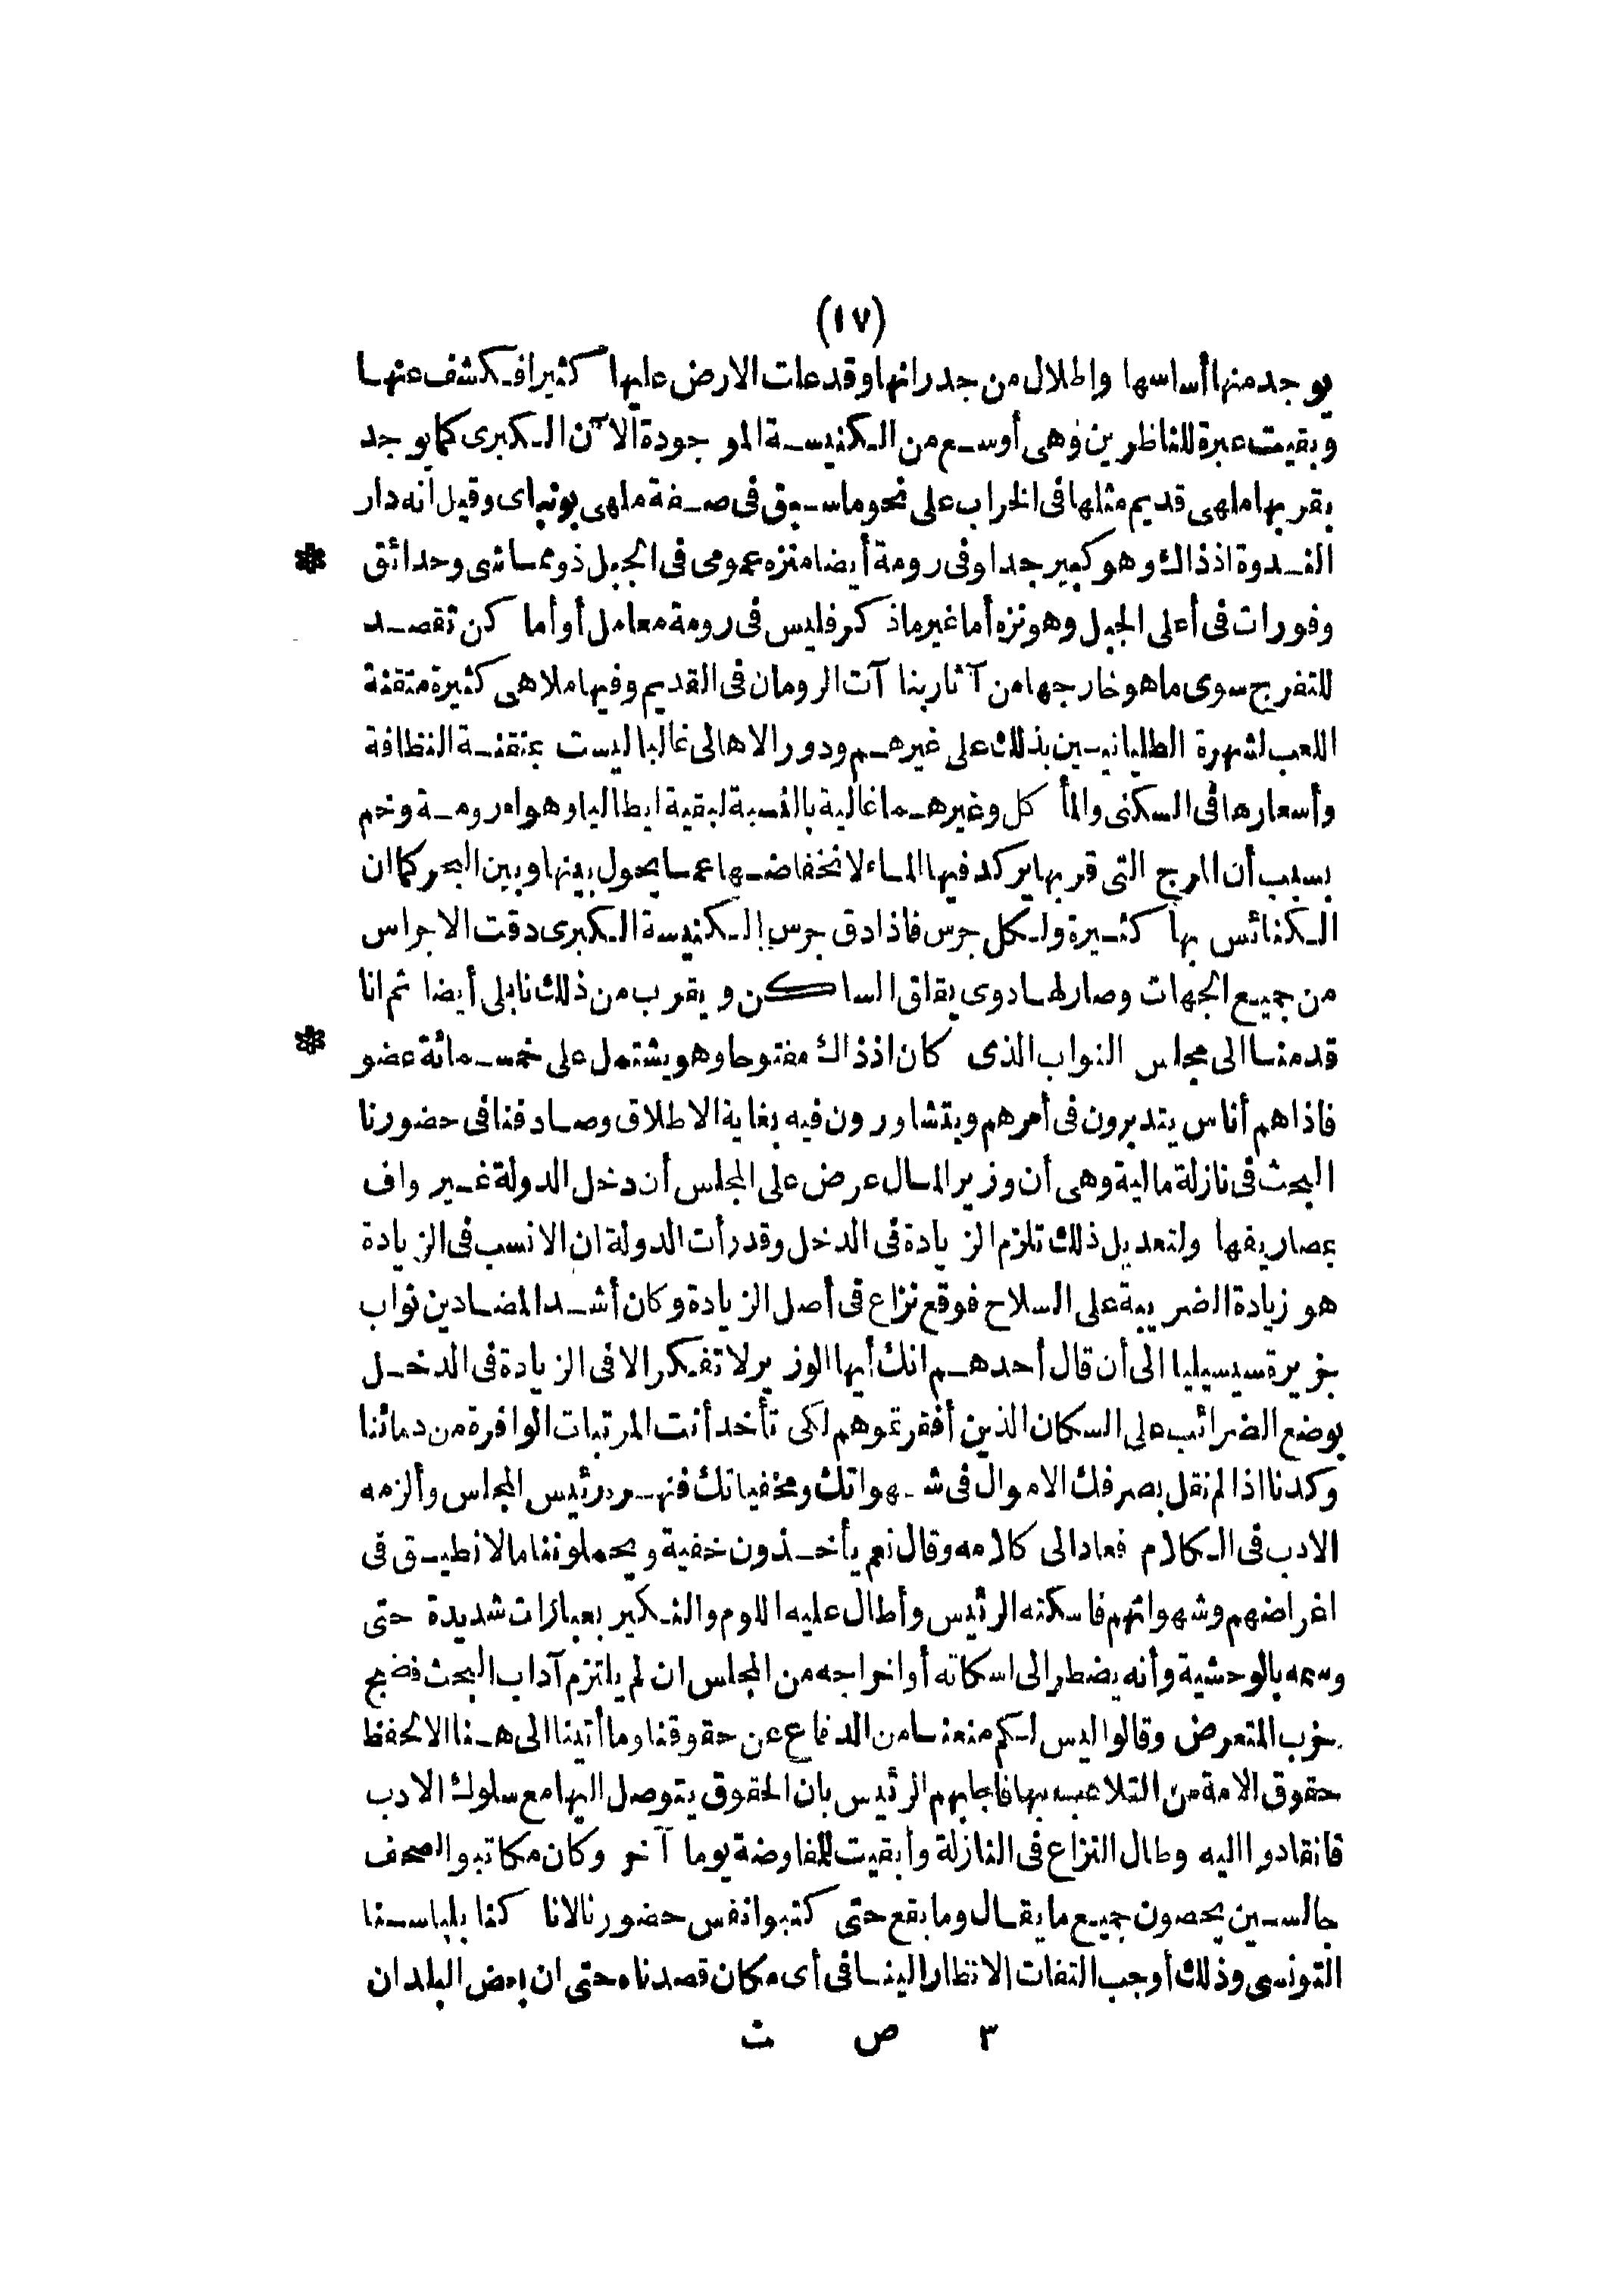 (١٧)
يوجد منها أساسها واطلال من جدرانها وقد علت الارض عليها كثيرا فكشف عنها
وبقيت عبرة للناظرين وهى أوسع من الكنيسة الموجودة الآن الكبرى كما يوجد
بقربها ملهى قديم مثلها فى الخراب على نحو ما سبق فى صفة ملهى بونباى وقيل انه دار
الندوة اذ ذاك وهو كبير جدا وفى رومة أيضا متنزه عمومى فى الجبل ذو مماشى وحدائق *
وفورات فى أعلى الجبل وهو نزه أما غير ماذكر فليس فى رومة معامل أو أماكن تقصد
للتفرج سوى ما هو خارجها من آثار بناآت الرومان فى القديم وفيها ملاهى كثيرة متقنة
اللعب لشهرة الطليانيين بذلك على غيرهم ودور الاهالى غالبا ليست بمتقنة النظافة
وأسعارها فى السكنى والمأكل وغيرهما غالية بالنسبة لبقية ايطاليا وهواء رومة وخم
بسبب أن المرج التى قربها يركد فيها الماء لانخفاضها عما يحول بينها وبين البحر كما ان
الكنائس بها كثيرة ولكل جرس فاذا دق جرس الكنيسة الكبرى دقت الاجراس
من جميع الجهات وصار لها دوى يقلق الساكن ويقرب من ذلك نابلى أيضا ثم انا
قدمنا الى مجلس النواب الذى كان اذ ذاك مفتوحا وهو يشتمل على خمسمائة عضو *
فاذاهم أناس يتدبرون فى أمرهم ويتشاورون فيه بغاية الاطلاق وصادفنا فى حضورنا
البحث فى نازلة مالية وهى أن وزير المال عرض على المجلس أن دخل الدولة غير واف
بمصاريفها ولتعديل ذلك تلزم الزيادة فى الدخل وقد رأت الدولة ان الانسب فى الزيادة
هو زيادة الضريبة على السلاح فوقع نزاع فى أصل الزيادة وكان أشد المضادين نواب
جزيرة سيسيليا الى أن قال أحدهم انك أيها الوزير لا تفكر الا فى الزيادة فى الدخل
بوضع الضرائب على السكان الذين أفقرتموهم لكى تأخد أنت المرتبات الوافرة من دمائنا
وكدنا اذا لم نقل بصرفك الاموال فى شهواتك ومخفياتك فنهره رئيس المجلس وألزمه
الادب فى الكلام فعاد الى كلامه وقال نعم يأخذون خفية ويحملوننا مالا نطيق فى
اغراضهم وشهواتهم فاسكته الرئيس وأطال عليه اللوم والنكير بعبارات شديدة حتى
وسمه بالوحشية وأنه يضطر الى اسكاته أو اخراجه من المجلس ان لم يلتزم آداب البحث فضج
حزب المتعرض وقالوا ليس لكم منعنا من الدفاع عن حقوقنا وما أتينا الى هنا الا لحفظ
حقوق الامة من التلاعب بها فاجابهم الرئيس بان الحقوق يتوصل اليها مع سلوك الادب
فانقادوا اليه وطال النزاع فى النازلة وأبقيت للمفاوضة يوما آخر وكان مكاتبو الصحف
جالسين يحصون جميع ما يقال وما يقع حتى كتبوا نفس حضورنا لانا كنا بلباسنا
التونسى وذلك أوجب التفات الانظار الينا فى أى مكان قصدناه حتى ان بعض البلدان
٣ ص ث